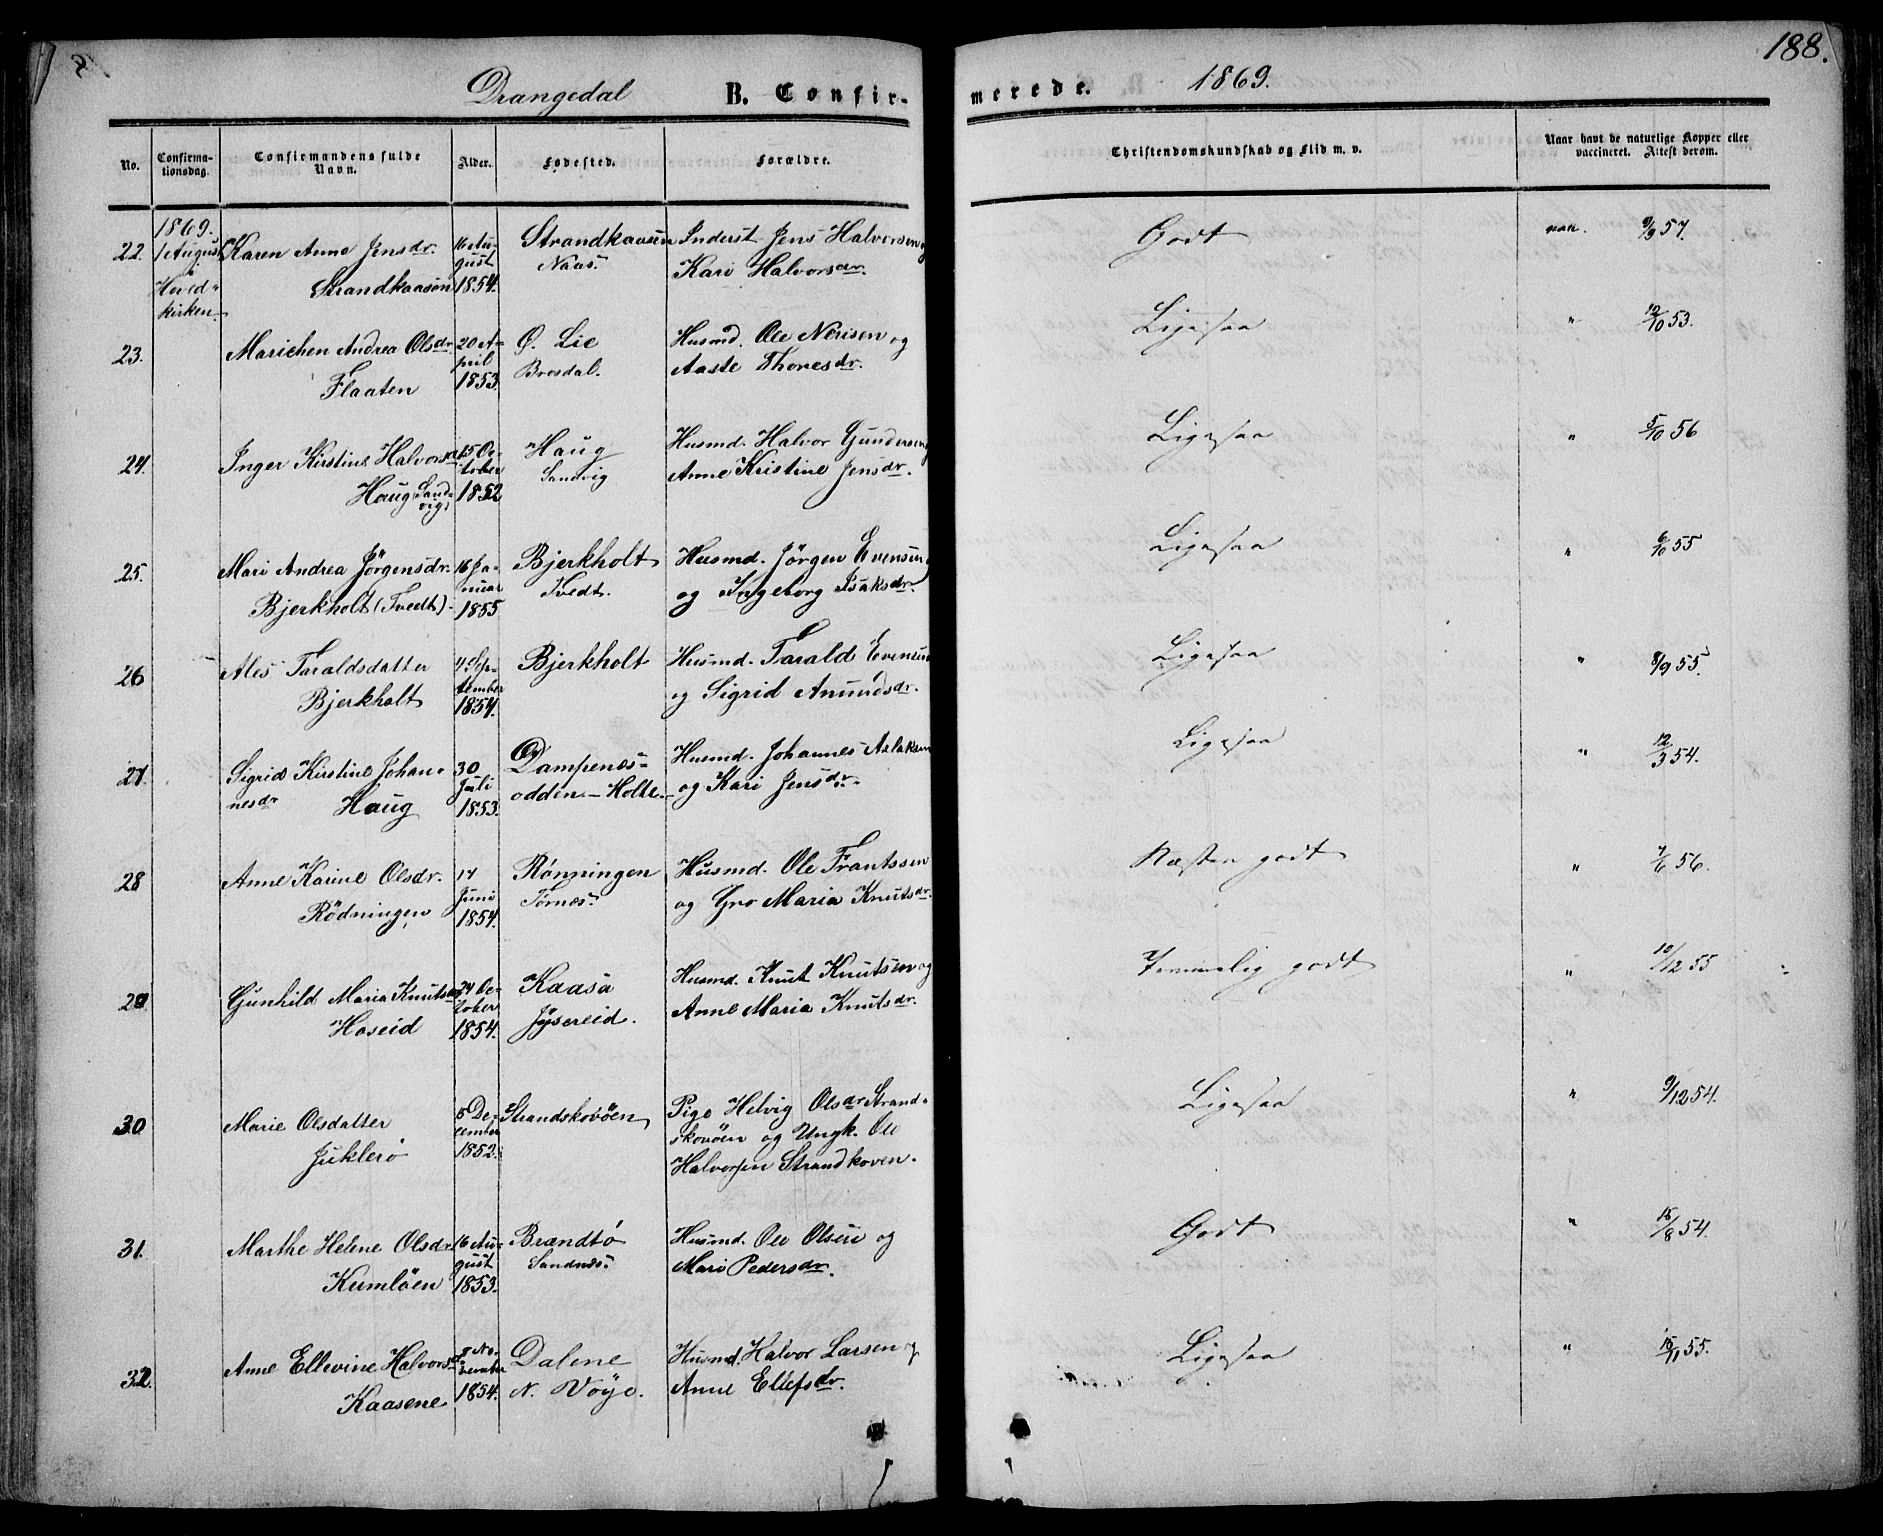 188.
Drangedal B. Confir- merede. 1869.
No. Confirma-tionsdag. Confirmandens fulde Navn. Alder. Fødested. Forældre. Christendomskundskab og Flid m. v. Naar havt de naturlige Kopper eller vaccineret. Attest derom.
1869.
22. 1 August Karen Anne Jensdr. 16 Au- Strandkaasen Inderst Jens Halvorsen og Godt vac. 9/9 57.
i Hoved- gust Naas. Kari Halvorsdr.
kirken Strandkaasen 1854.
23. Marichen Andrea Olsdr. 20 A- Ø. Lie Husmd. Ole Nerisen og Ligesaa " 12/10 53.
pril Brosdal. Aaste Thoresdr.
Flaaten 1853.
24. Inger Kirstine Halvorsdr 15 Oc- Haug Husmd. Halvor Gundersen Ligesaa " 5/10 56
tober Sandvig Anne Kristine Jensdr.
Haug (Sand- vig) 1852
25. Mari Andrea Jörgensdr. 16 Ja- Bjerkholt Husmd. Jørgen Evensen Ligesaa " 6/10 55
nuar Tvedt. og Ingeborg Isaksdr.
Bjerkholt (Tvedt). 1855
26 Ales Taraldsdatter 4 Sep- Bjerkholt Husmd. Tarald Evensen Ligesaa " 8/9 55.
tember og Sigrid Amundsdr.
Bjerkholt 1854.
27. Sigrid Kirstine Johan- 30 Dampenæs- Husmd. Johannes Aslaksen Ligesaa " 12/3 54.
nesdr Juli odden - Holte. og Kari Jensdr.
Haug 1853.
28 Anne Karine Olsdr. 17 Rønningen Husmd. Ole Frantssen Næsten godt " 7/6 56.
Juni Tørnæs. og Gro Maria Knutsdr.
Rödningen 1854.
29. Gunhild Maria Knutsdr 24 Oc- Kaasa Husmd. Knut Knutsen og Temmelig godt " 10/12 55
tober Jysereid. Anne Maria Knutsdr.
Hoseid 1854.
30 Marie Olsdatter 5 De- Strandskovöen Pige Helvig Olsdr Strand- Ligesaa " 9/12 54.
cember skovöen og Ungk. Ole
Juklerø 1852. Halvorsen Strandkoven.
31. Marthe Helene Olsdr. 16 Au- Brandtø Husmd. Ole Olsen og Godt " 15/8 54.
gust Sandnæs. Mari Pedersdr.
Kumlöen 1853.
32. Anne Ellevine Halvorsdr 8 No- Dalene Husmd. Halvor Larsen og Ligesaa " 15/11 55.
vember N. Voje. Anne Ellefsdr.
Kaasene 1854.